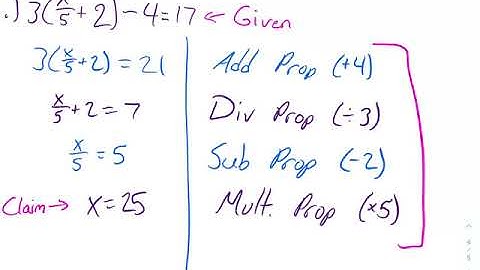 .) 3(x/5 + 2) - 4 = 17 ← Given
3(x/5 + 2) = 21 Add Prop (+4)
x/5 + 2 = 7 Div Prop (÷3)
x/5 = 5 Sub Prop (-2)
Claim → x = 25 Mult. Prop (×5)